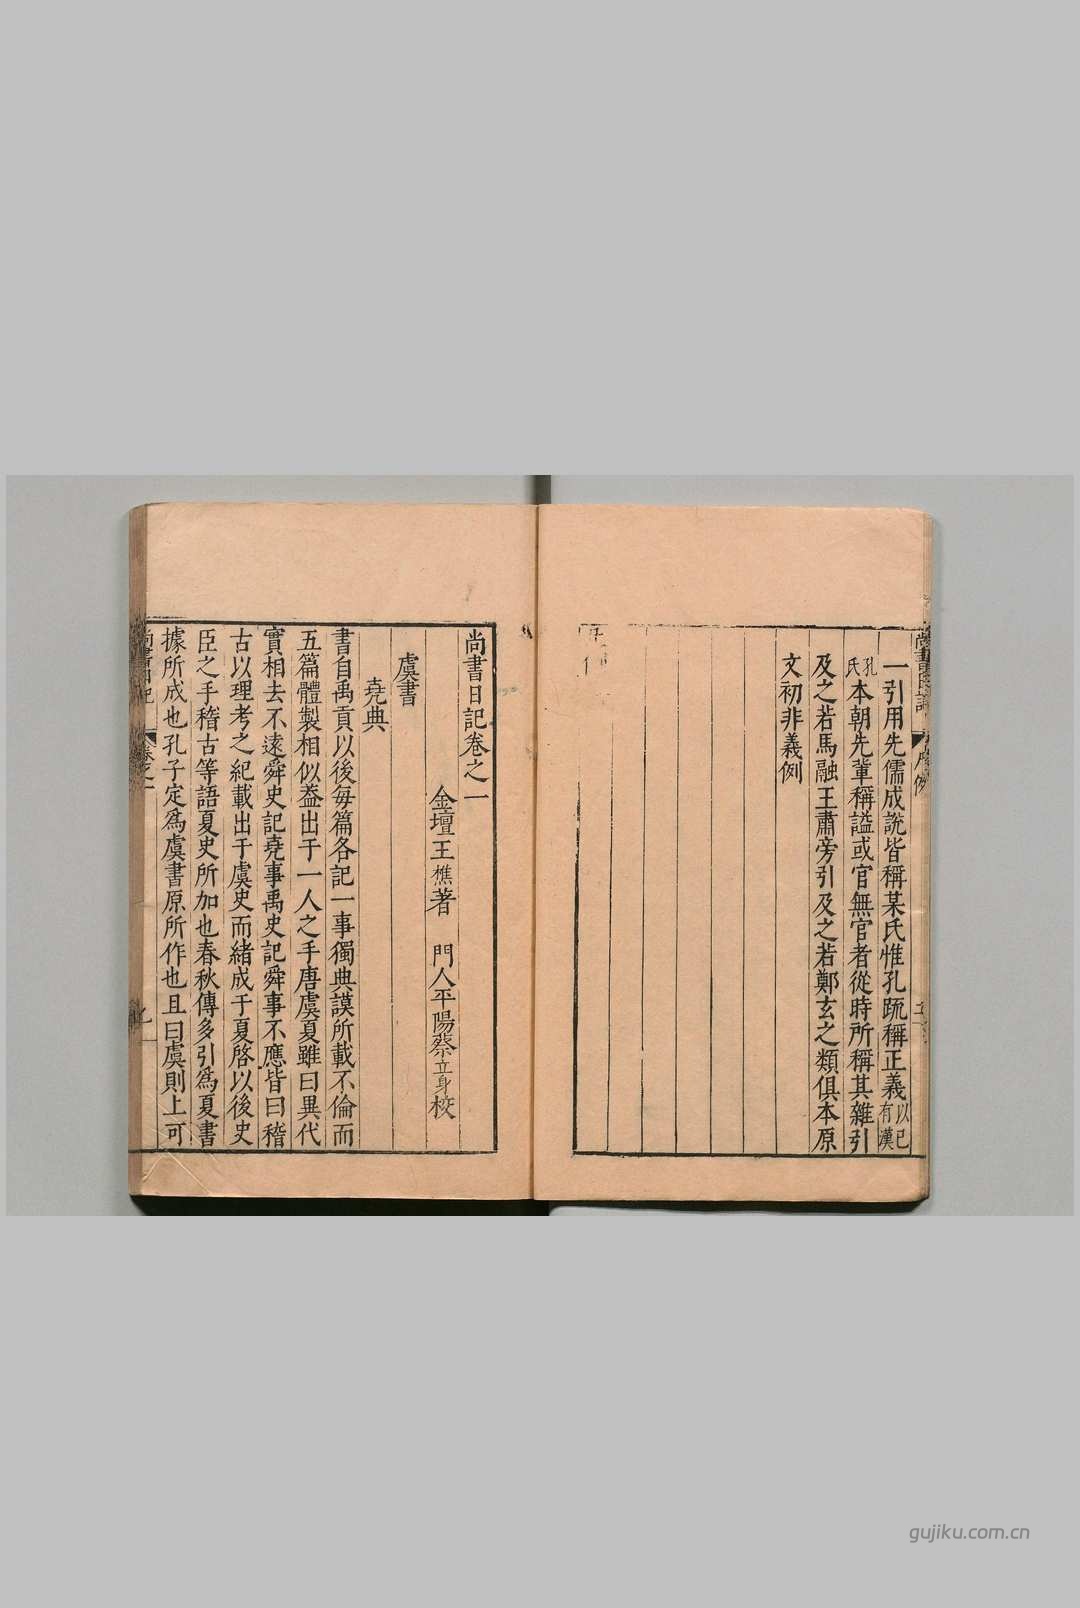 一引用先儒成說皆稱某氏惟孔疏稱正義以已有漢
孔氏本朝先輩稱謚或官無官者從時所稱其雜引
及之若馬融王肅旁引及之若鄭玄之類俱本原
文初非義例
尚書日記卷之一
金壇王樵著 門人平陽蔡立身校
虞書
堯典
書自禹貢以後每篇各記一事獨典謨所載不倫而
五篇體製相似葢出于一人之手唐虞夏雖曰異代
實相去不遠舜史記堯事禹史記舜事不應皆曰稽
古以理考之紀載出于虞史而緒成于夏啓以後史
臣之手稽古等語夏史所加也春秋傳多引爲夏書
據所成也孔子定爲虞書原所作也且曰虞則上可
尚書日記 卷之一
gujiku.com.cn